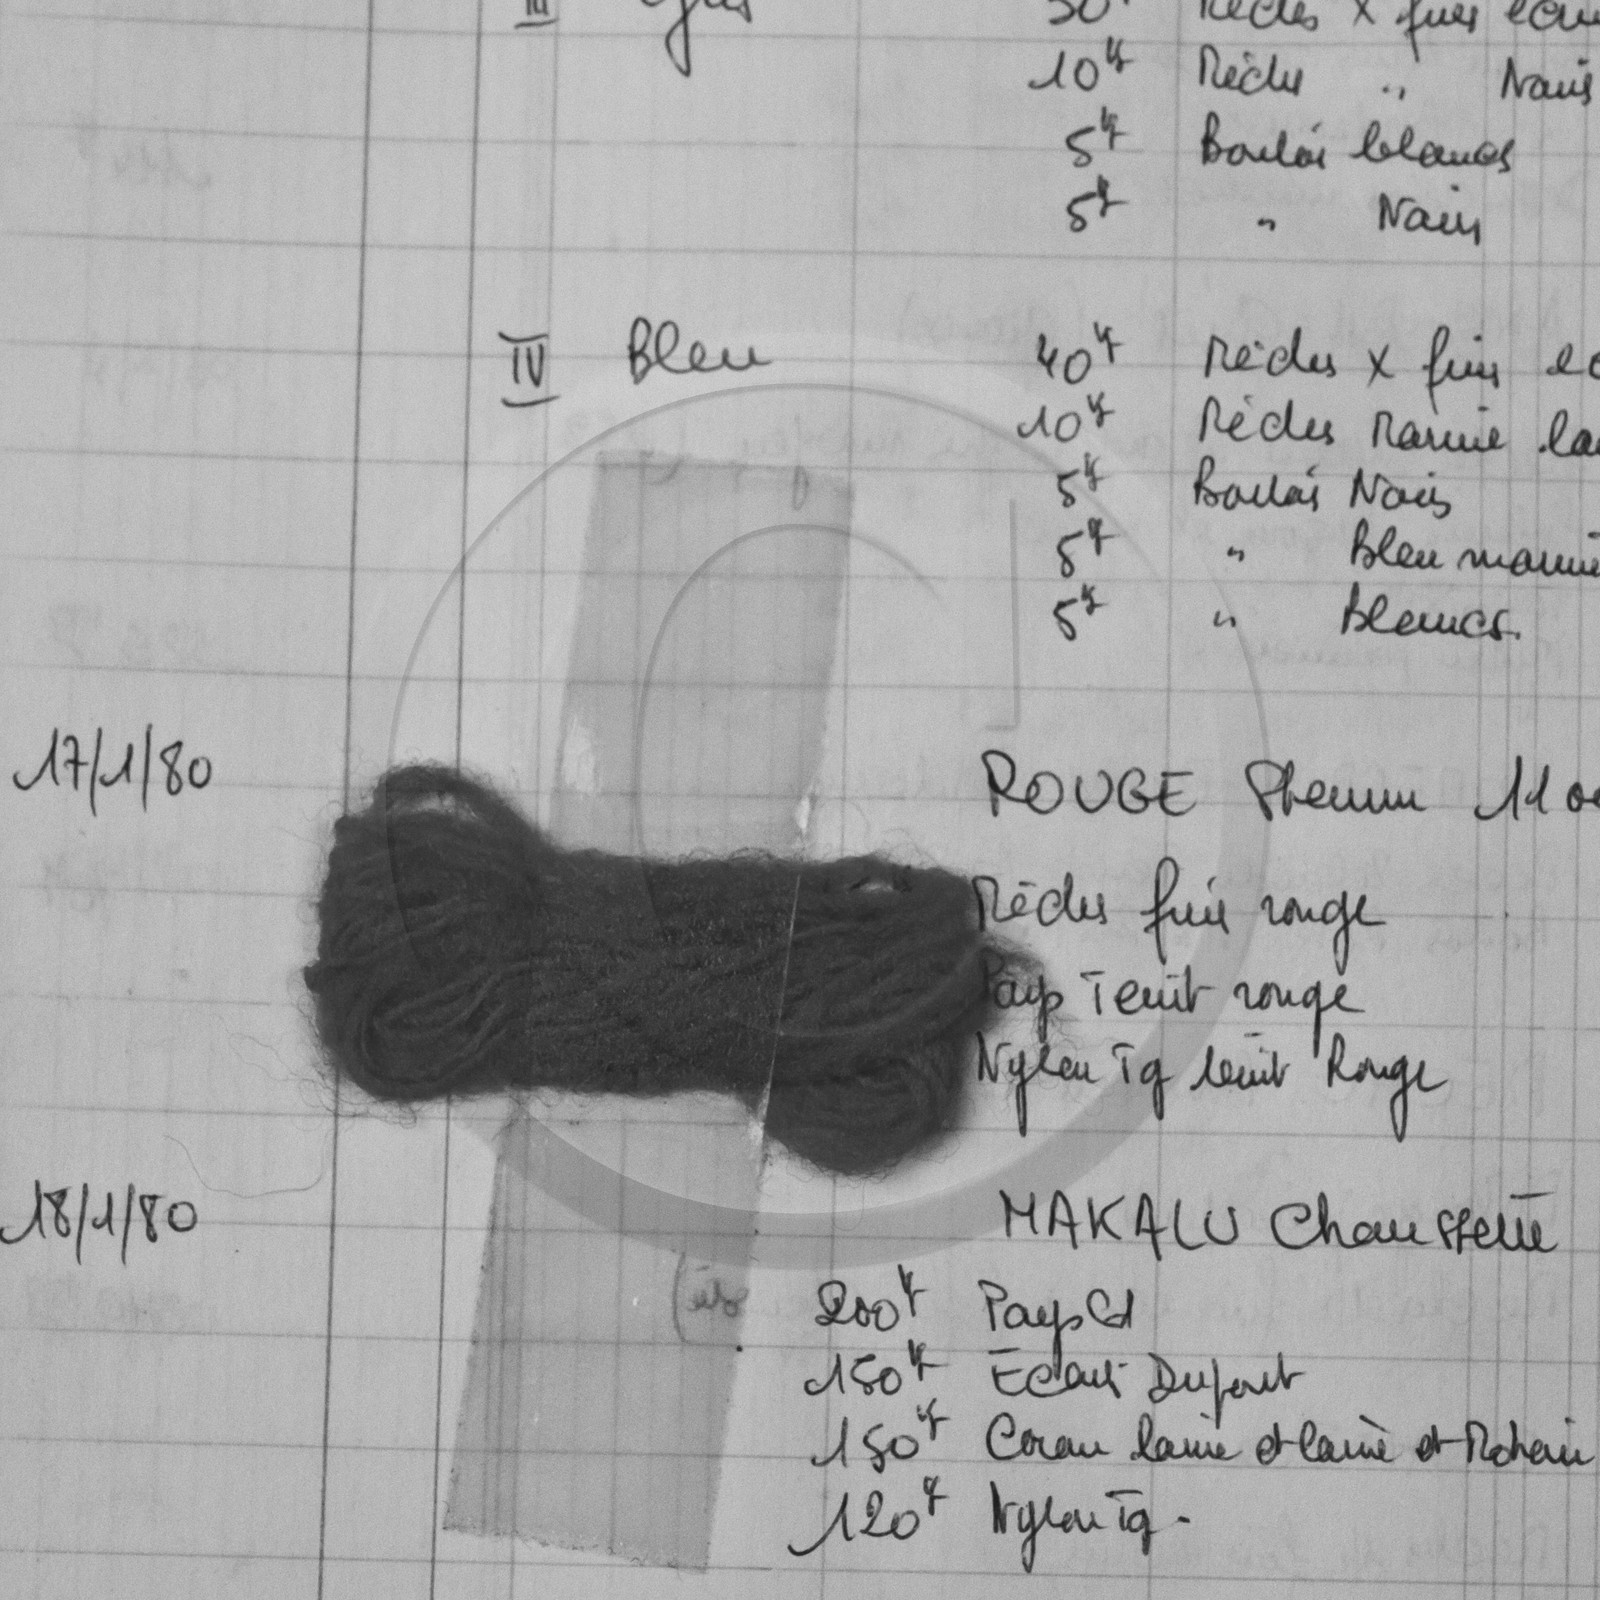 III Gris 30 K Mèches X fines
10 K Mèches " Noirs
5 K Boulois blancs
5 K " Noirs
IV Bleu 40 K Mèches X fines
10 K Mèches Marine
5 K Boulois Noirs
5 K " Bleu marine
5 K " Blancs.
17/1/80 ROUGE 11
Mèches fine rouge
Pays Teint rouge
Nylon Tq teint Rouge
18/1/80 MAKALU Chaussette
200 K Pays Cd
150 K Ecarts Dupont
150 K laine et laine et Mohair
120 K Nylon Tq.